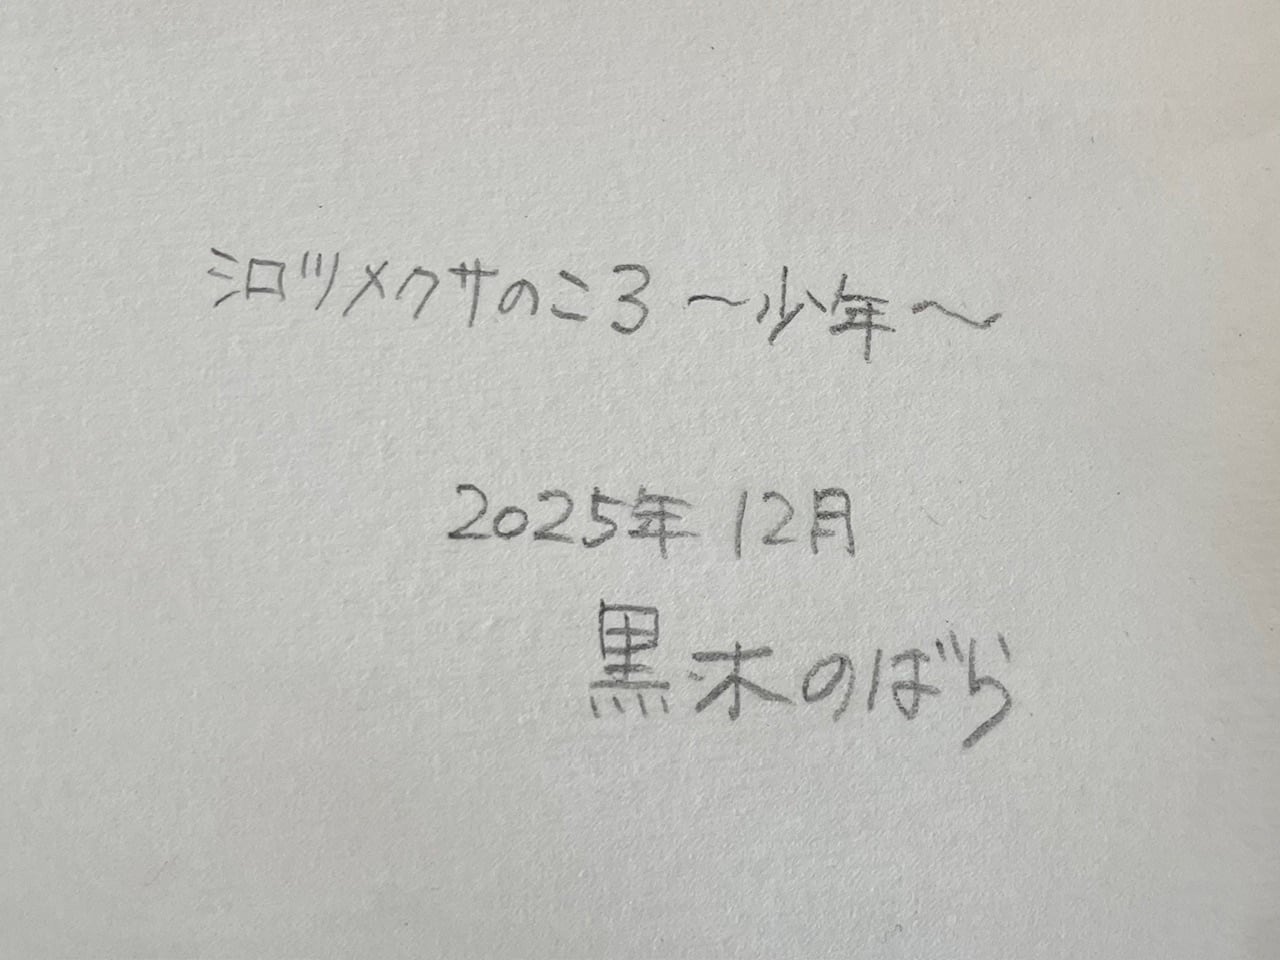 シロツメクサのころ 〜少年〜
2025年 12月
黒木のばら